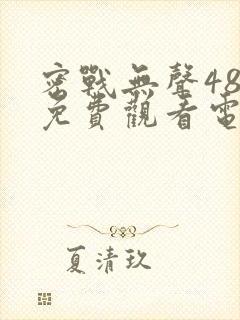 密戰無聲48
免費觀看電
夏清玖